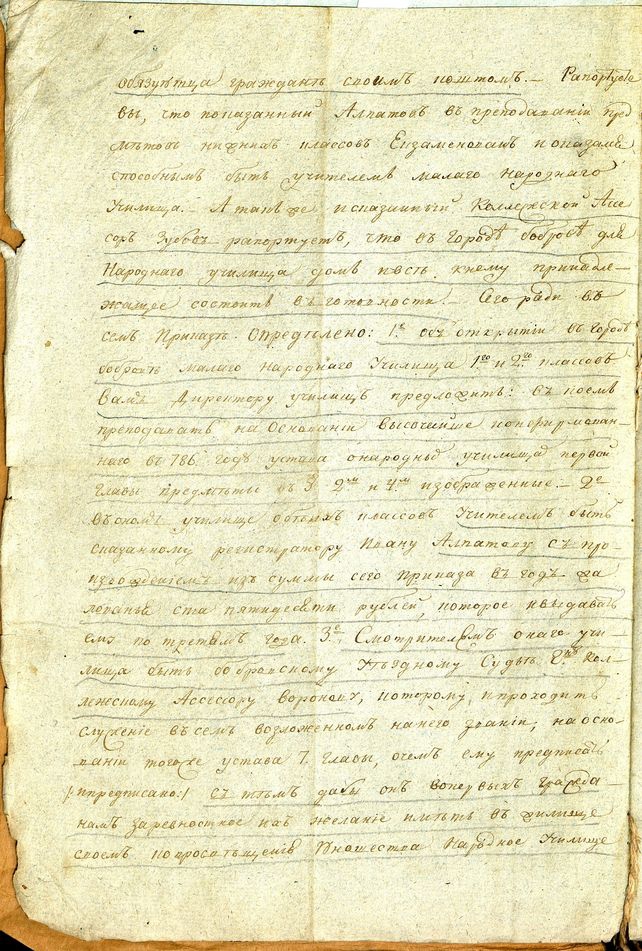 обязуѣтца гражданъ своимъ коштомъ. — Рапортуете
вы, что показанный Алпатовъ въ преподаваніи пред
мѣтовъ нижнихъ классовъ Екзаменованъ и оказался
способнымъ быть учителемъ малаго народнаго
Училища. — А также и сказанный Коллежской Ассе
соръ Зубовъ рапортуетъ, что въ городѣ бобровѣ для
Народнаго училища домъ и весь к нему принадле-
жащее состоитъ въ готовности. — Сего ради въ
семъ Приказѣ Опредѣлено: 1е объ открытіи въ городѣ
бобровѣ малаго народнаго Училища 1го и 2го классовъ
Вамъ Директору училищъ предложить: въ коемъ
преподавать на Основаніи высочайше конфирмован-
наго въ 786 годѣ устава о народныхъ училищахъ первой
главы предмѣты въ 3 2мъ и 4мъ изображенные. — 2е
въ ономъ училище обоихъ классовъ Учителемъ быть
сказанному регистратору Ивану Алпатову съ про-
извожденіемъ изъ суммы сего приказа въ годъ жа
лованья ста пятидесяти рублей, которое и выдавать
ему по третямъ года. 3е, Смотрителемъ онаго учи-
лища быть бобровскому Уѣздному Судьѣ Гну Кол-
лежскому Ассесору Воронову, которому, и проходить
служеніе въ семъ возложенномъ на него званіи, на осно-
ваніи тогоже устава 7. главы, о чемъ ему предписать
/: и предписано:/ съ тѣмъ дабы онъ вопервыхъ гражда-
намъ за ревностное ихъ желаніе имѣть въ жилище
своемъ к просвѣщенію Юношества Народное Училище